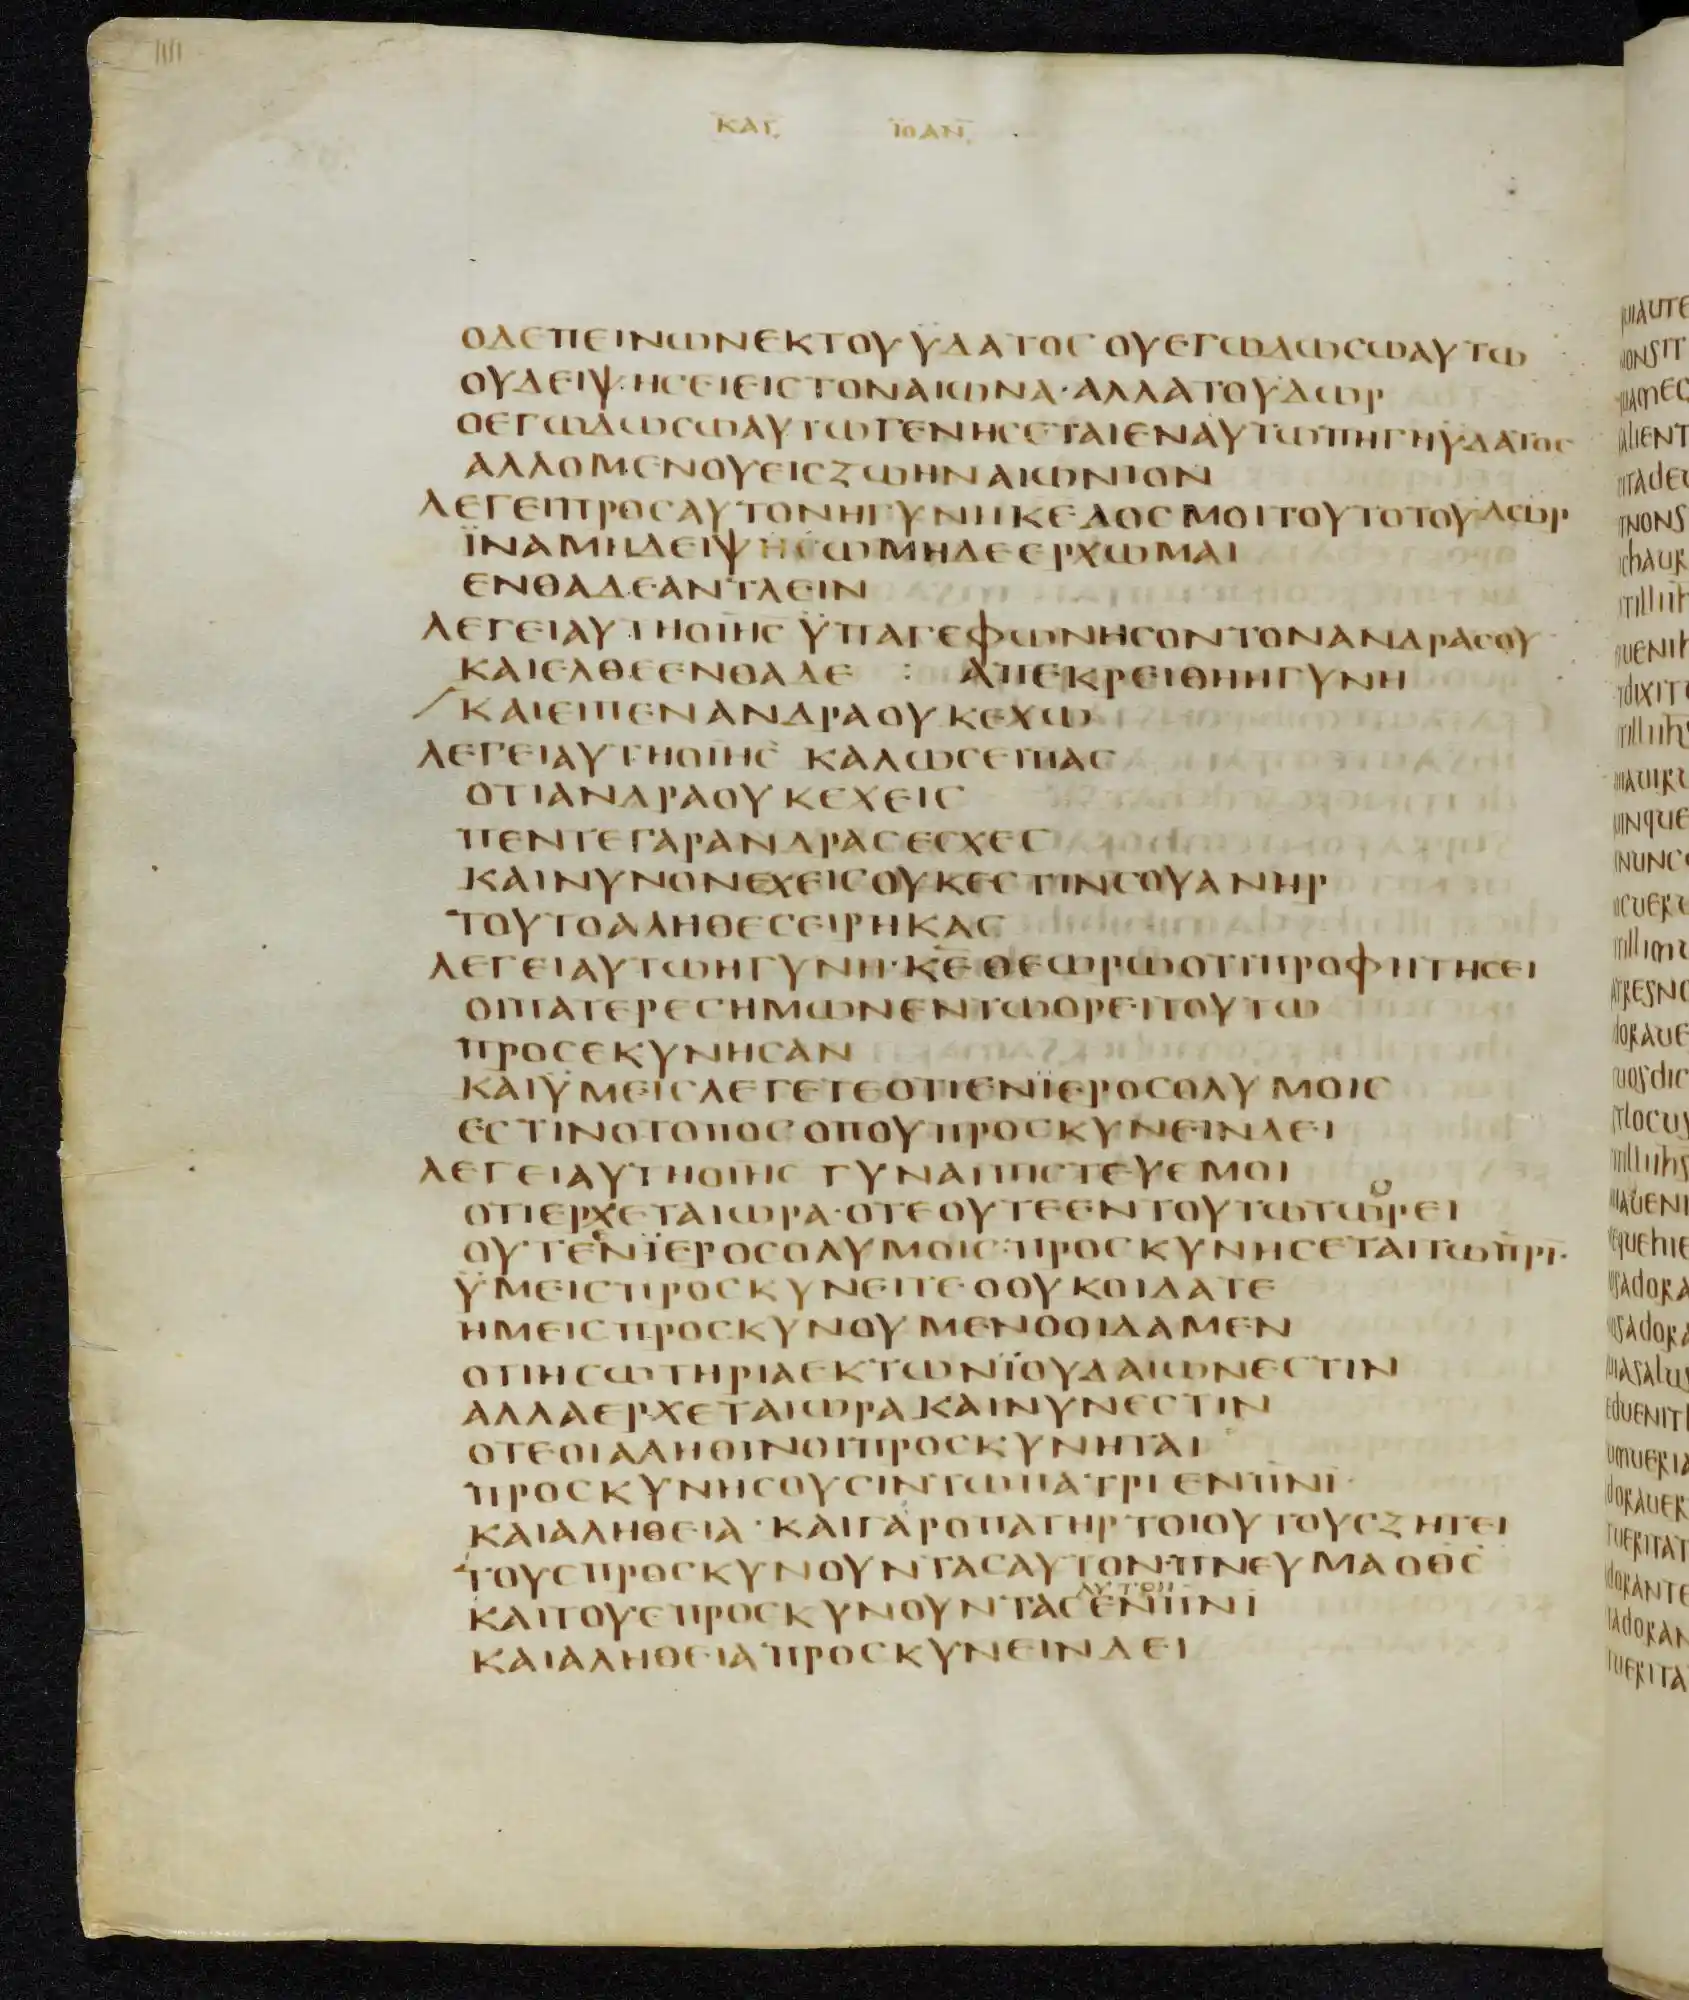 ΚΑΤ ΙΩΑΝ
ΟΔΕΠΕΙΝΩΝΕΚΤΟΥΫΔΑΤΟΣ ΟΥΕΓΩΔΩΣΩΑΥΤΩ
ΟΥΔΕΙΨΗΣΕΙΕΙΣΤΟΝΑΙΩΝΑ·ΑΛΛΑΤΟΥΔΩΡ
ΟΕΓΩΔΩΣΩΑΥΤΩΓΕΝΗΣΕΤΑΙΕΝΑΥΤΩΠΗΓΗΫΔΑΤΟΣ
ΑΛΛΟΜΕΝΟΥΕΙΣΖΩΗΝΑΙΩΝΙΟΝ
ΛΕΓΕΙΠΡΟΣΑΥΤΟΝΗΓΥΝΗΚΕΔΟΣΜΟΙΤΟΥΤΟΤΟΥΔΩΡ
ΪΝΑΜΗΔΕΙΨΗΣΩΜΗΔΕΕΡΧΩΜΑΙ
ΕΝΘΑΔΕΑΝΤΛΕΙΝ
ΛΕΓΕΙΑΥΤΗΟΙΗΣ ΫΠΑΓΕΦΩΝΗΣΟΝΤΟΝΑΝΔΡΑΣΟΥ
ΚΑΙΕΛΘΕΕΝΘΑΔΕ : ΑΠΕΚΡΕΙΘΗΗΓΥΝΗ
ΚΑΙΕΙΠΕΝΑΝΔΡΑΟΥΚΕΧΩ
ΛΕΓΕΙΑΥΤΗΟΙΗΣ ΚΑΛΩΣΕΙΠΑΣ
ΟΤΙΑΝΔΡΑΟΥΚΕΧΕΙΣ
ΠΕΝΤΕΓΑΡΑΝΔΡΑΣΕΣΧΕΣ
ΚΑΙΝΥΝΟΝΕΧΕΙΣΟΥΚΕΣΤΙΝΣΟΥΑΝΗΡ
ΤΟΥΤΟΑΛΗΘΕΣΕΙΡΗΚΑΣ
ΛΕΓΕΙΑΥΤΩΗΓΥΝΗ·ΚΕ ΘΕΩΡΩΟΤΙΠΡΟΦΗΤΗΣΕΙ
ΟΙΠΑΤΕΡΕΣΗΜΩΝΕΝΤΩΟΡΕΙΤΟΥΤΩ
ΠΡΟΣΕΚΥΝΗΣΑΝ
ΚΑΙΫΜΕΙΣΛΕΓΕΤΕΟΤΙΕΝΪΕΡΟΣΟΛΥΜΟΙΣ
ΕΣΤΙΝΟΤΟΠΟΣΟΠΟΥΠΡΟΣΚΥΝΕΙΝΔΕΙ
ΛΕΓΕΙΑΥΤΗΟΙΗΣ ΓΥΝΑΙΠΙΣΤΕΥΕΜΟΙ
Ο
ΟΤΙΕΡΧΕΤΑΙΩΡΑ·ΟΤΕΟΥΤΕΕΝΤΟΥΤΩΤΩΡΕΙ
ΟΥΤΕΝΪΕΡΟΣΟΛΥΜΟΙΣ·ΠΡΟΣΚΥΝΗΣΕΤΑΙΤΩΠΡΙ·
ΫΜΕΙΣΠΡΟΣΚΥΝΕΙΤΕΟΟΥΚΟΙΔΑΤΕ
ΗΜΕΙΣΠΡΟΣΚΥΝΟΥΜΕΝΟΟΙΔΑΜΕΝ
ΟΤΙΗΣΩΤΗΡΙΑΕΚΤΩΝΪΟΥΔΑΙΩΝΕΣΤΙΝ
ΑΛΛΑΕΡΧΕΤΑΙΩΡΑΚΑΙΝΥΝΕΣΤΙΝ
ΟΤΕΟΙΑΛΗΘΙΝΟΙΠΡΟΣΚΥΝΗΤΑΙ
ΠΡΟΣΚΥΝΗΣΟΥΣΙΝΤΩΠΑΤΡΙΕΝΠΝΙ
ΚΑΙΑΛΗΘΕΙΑ·ΚΑΙΓΑΡΟΠΑΤΗΡΤΟΙΟΥΤΟΥΣΖΗΤΕΙ
ΤΟΥΣΠΡΟΣΚΥΝΟΥΝΤΑΣΑΥΤΟΝ·ΠΝΕΥΜΑΟΘΣ
ΑΥΤΟΝ
ΚΑΙΤΟΥΣΠΡΟΣΚΥΝΟΥΝΤΑΣΕΝΠΝΙ
ΚΑΙΑΛΗΘΕΙΑΠΡΟΣΚΥΝΕΙΝΔΕΙ